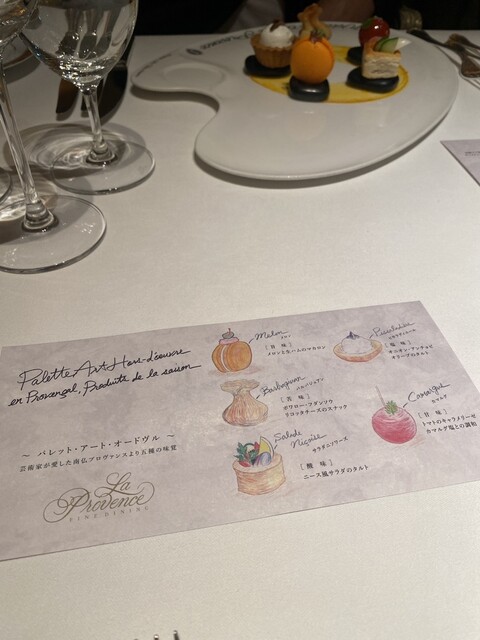 Palette Art Hors-d'œuvre
en Provençal, Produits de la saison
～ パレット・アート・オードヴル ～
芸術家が愛した南仏プロヴァンスより五種の味覚
La
Provence
FINE DINING
Melon
メロン
[ 甘 味 ]
メロンと生ハムのマカロン
Barbajuan
バルバジュアン
[ 苦 味 ]
ポワロー・フダンソウ
リコッタチーズのスナック
Salade
Niçoise
サラダニソワーズ
[ 酸 味 ]
ニース風サラダのタルト
Pissaladière
[ 塩 味 ]
オニオン・アンチョビ
オリーブのタルト
Camargue
カマルグ
[ 甘 味 ]
トマトのキャラメリーゼ
カマルグ塩との調和